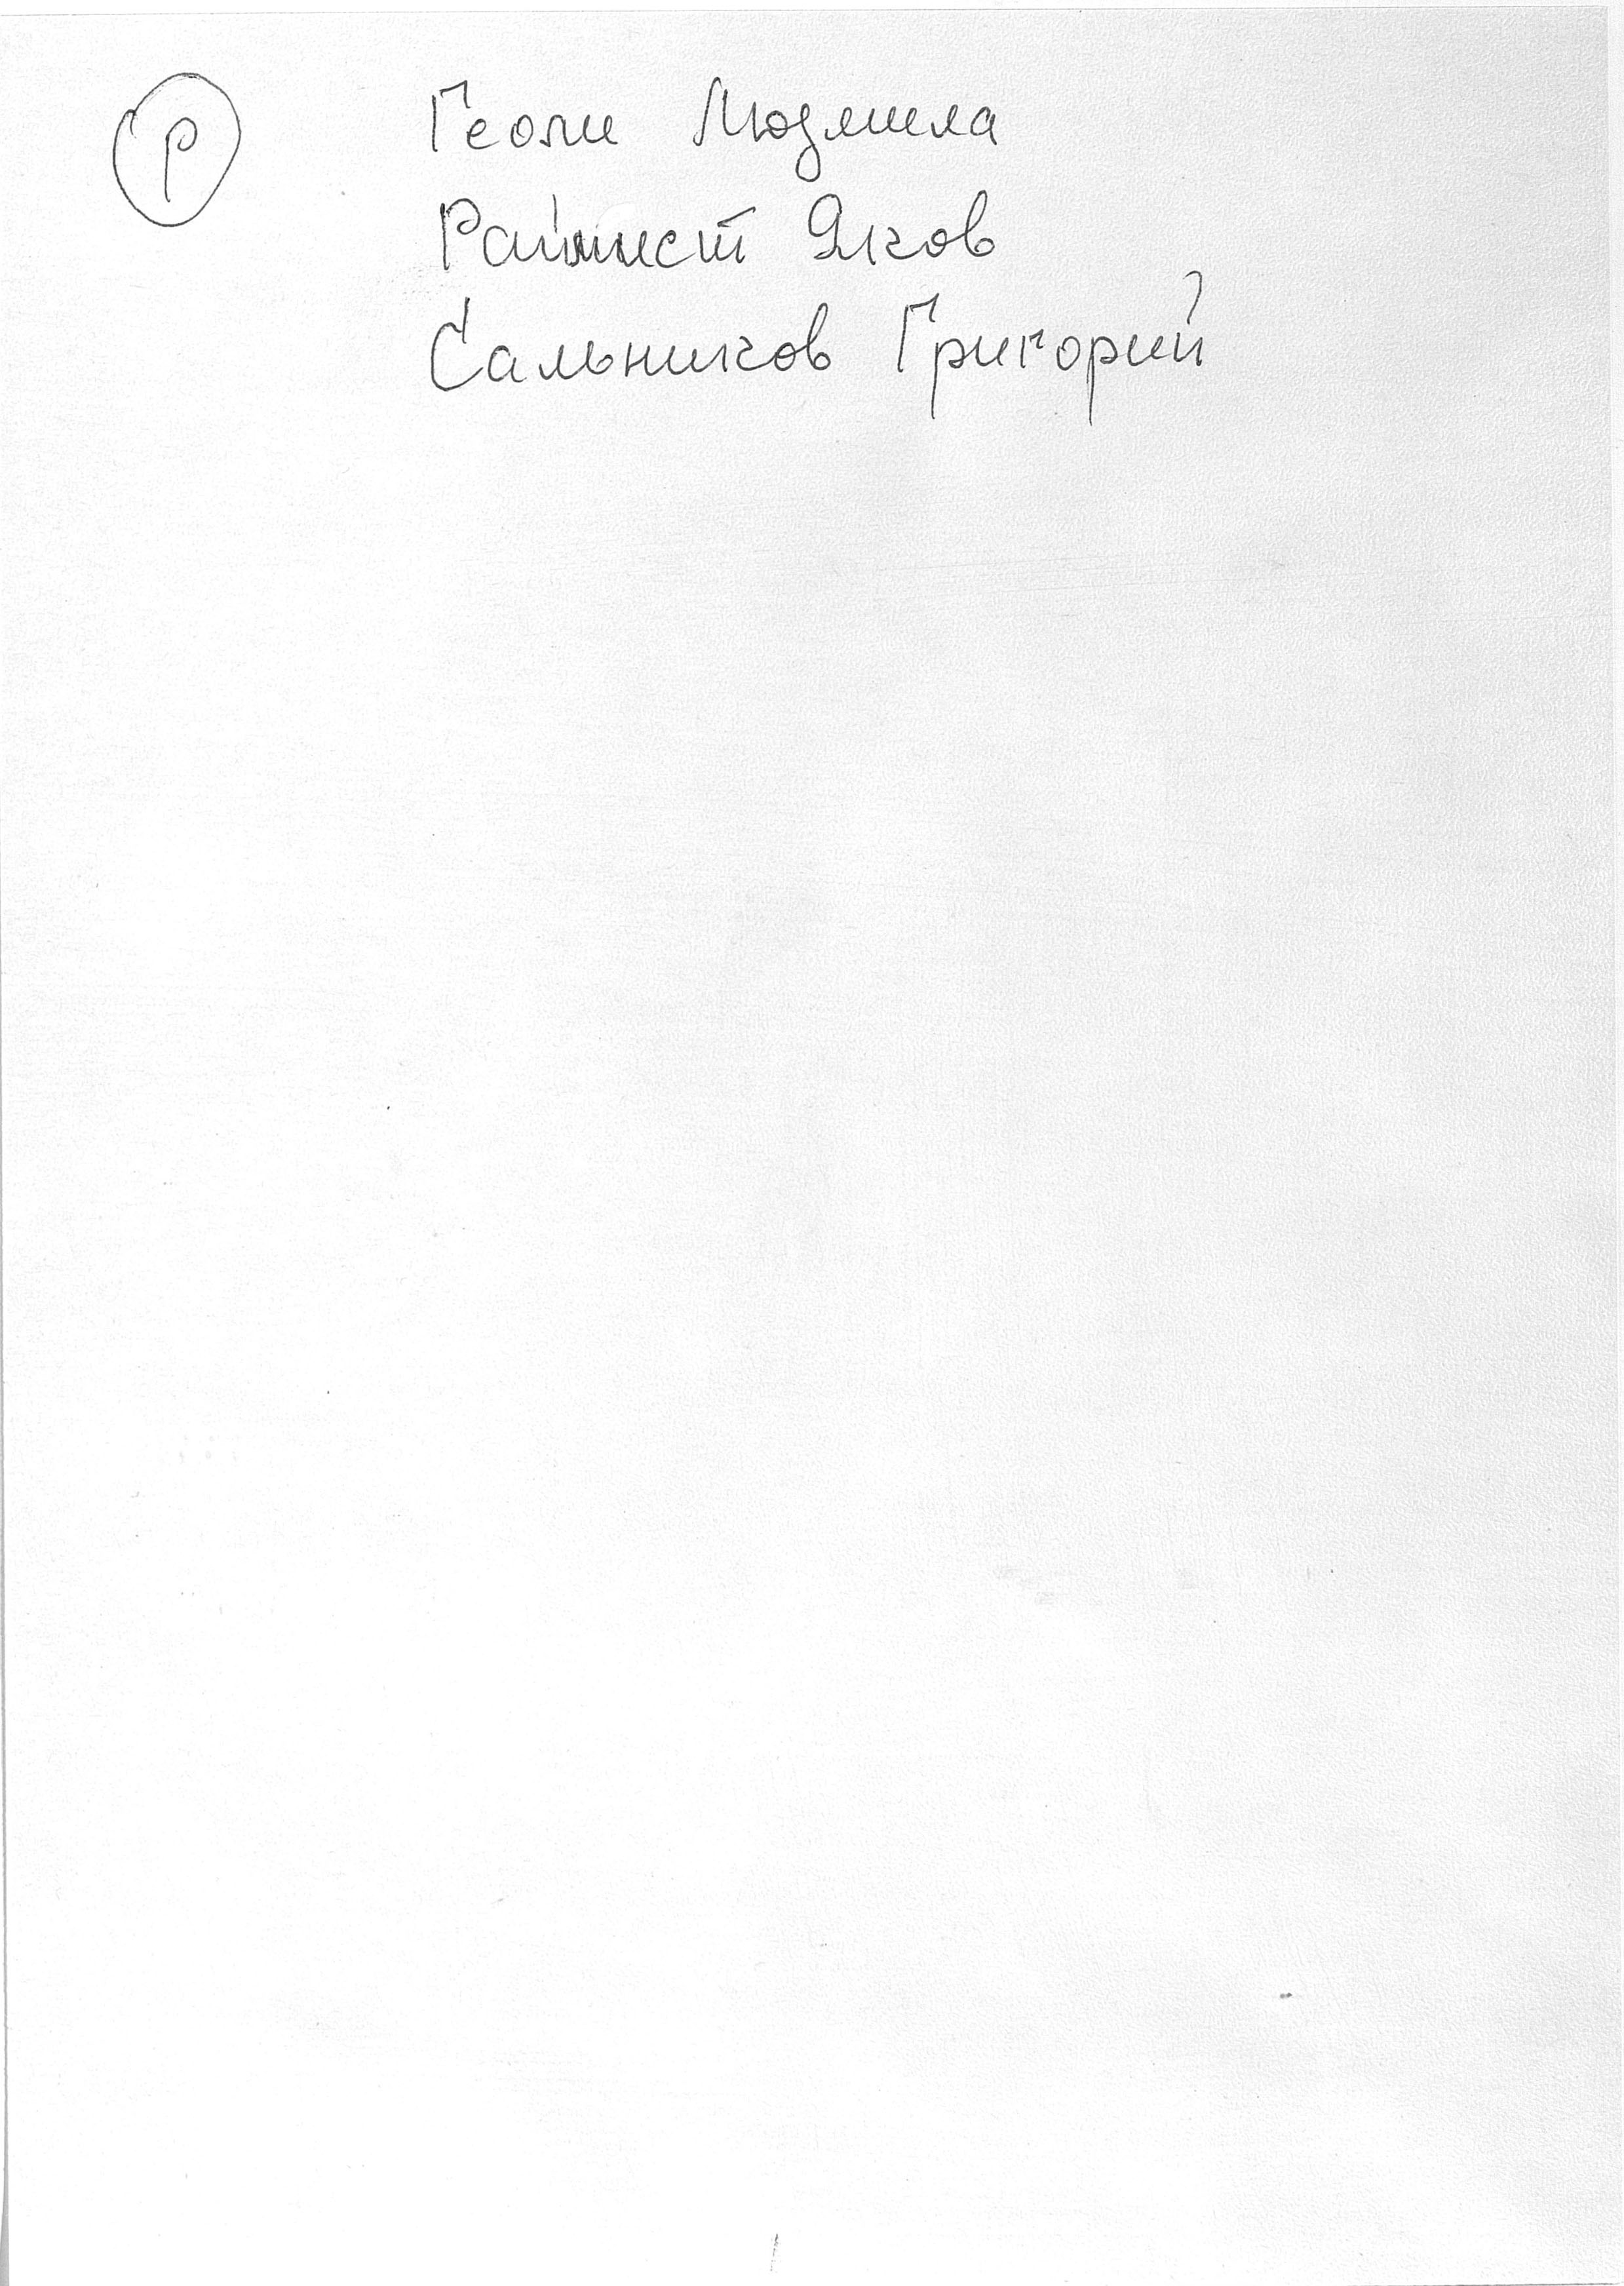 Р Геоли Людмила
Яков
Сальников Григорий